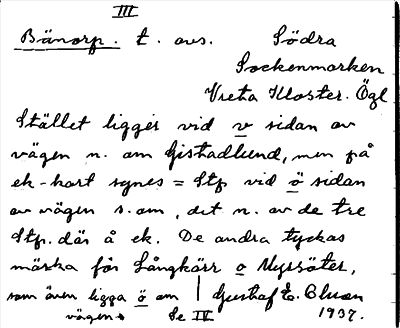 III
Bänorp. t. avs. Södra
Sockenmarken
Vreta Kloster. Ögl
Stället ligger vid v sidan av
vägen n. om Gistadlund, men på
ek-kart synes = Stp vid ö sidan
av vägen s. om, det n. av de tre
Stp. där å ek. De andra tyckas
märka för Långkärr o Myrsäter,
som även ligga ö om
vägen. Se IV
Gustaf E:
1937.